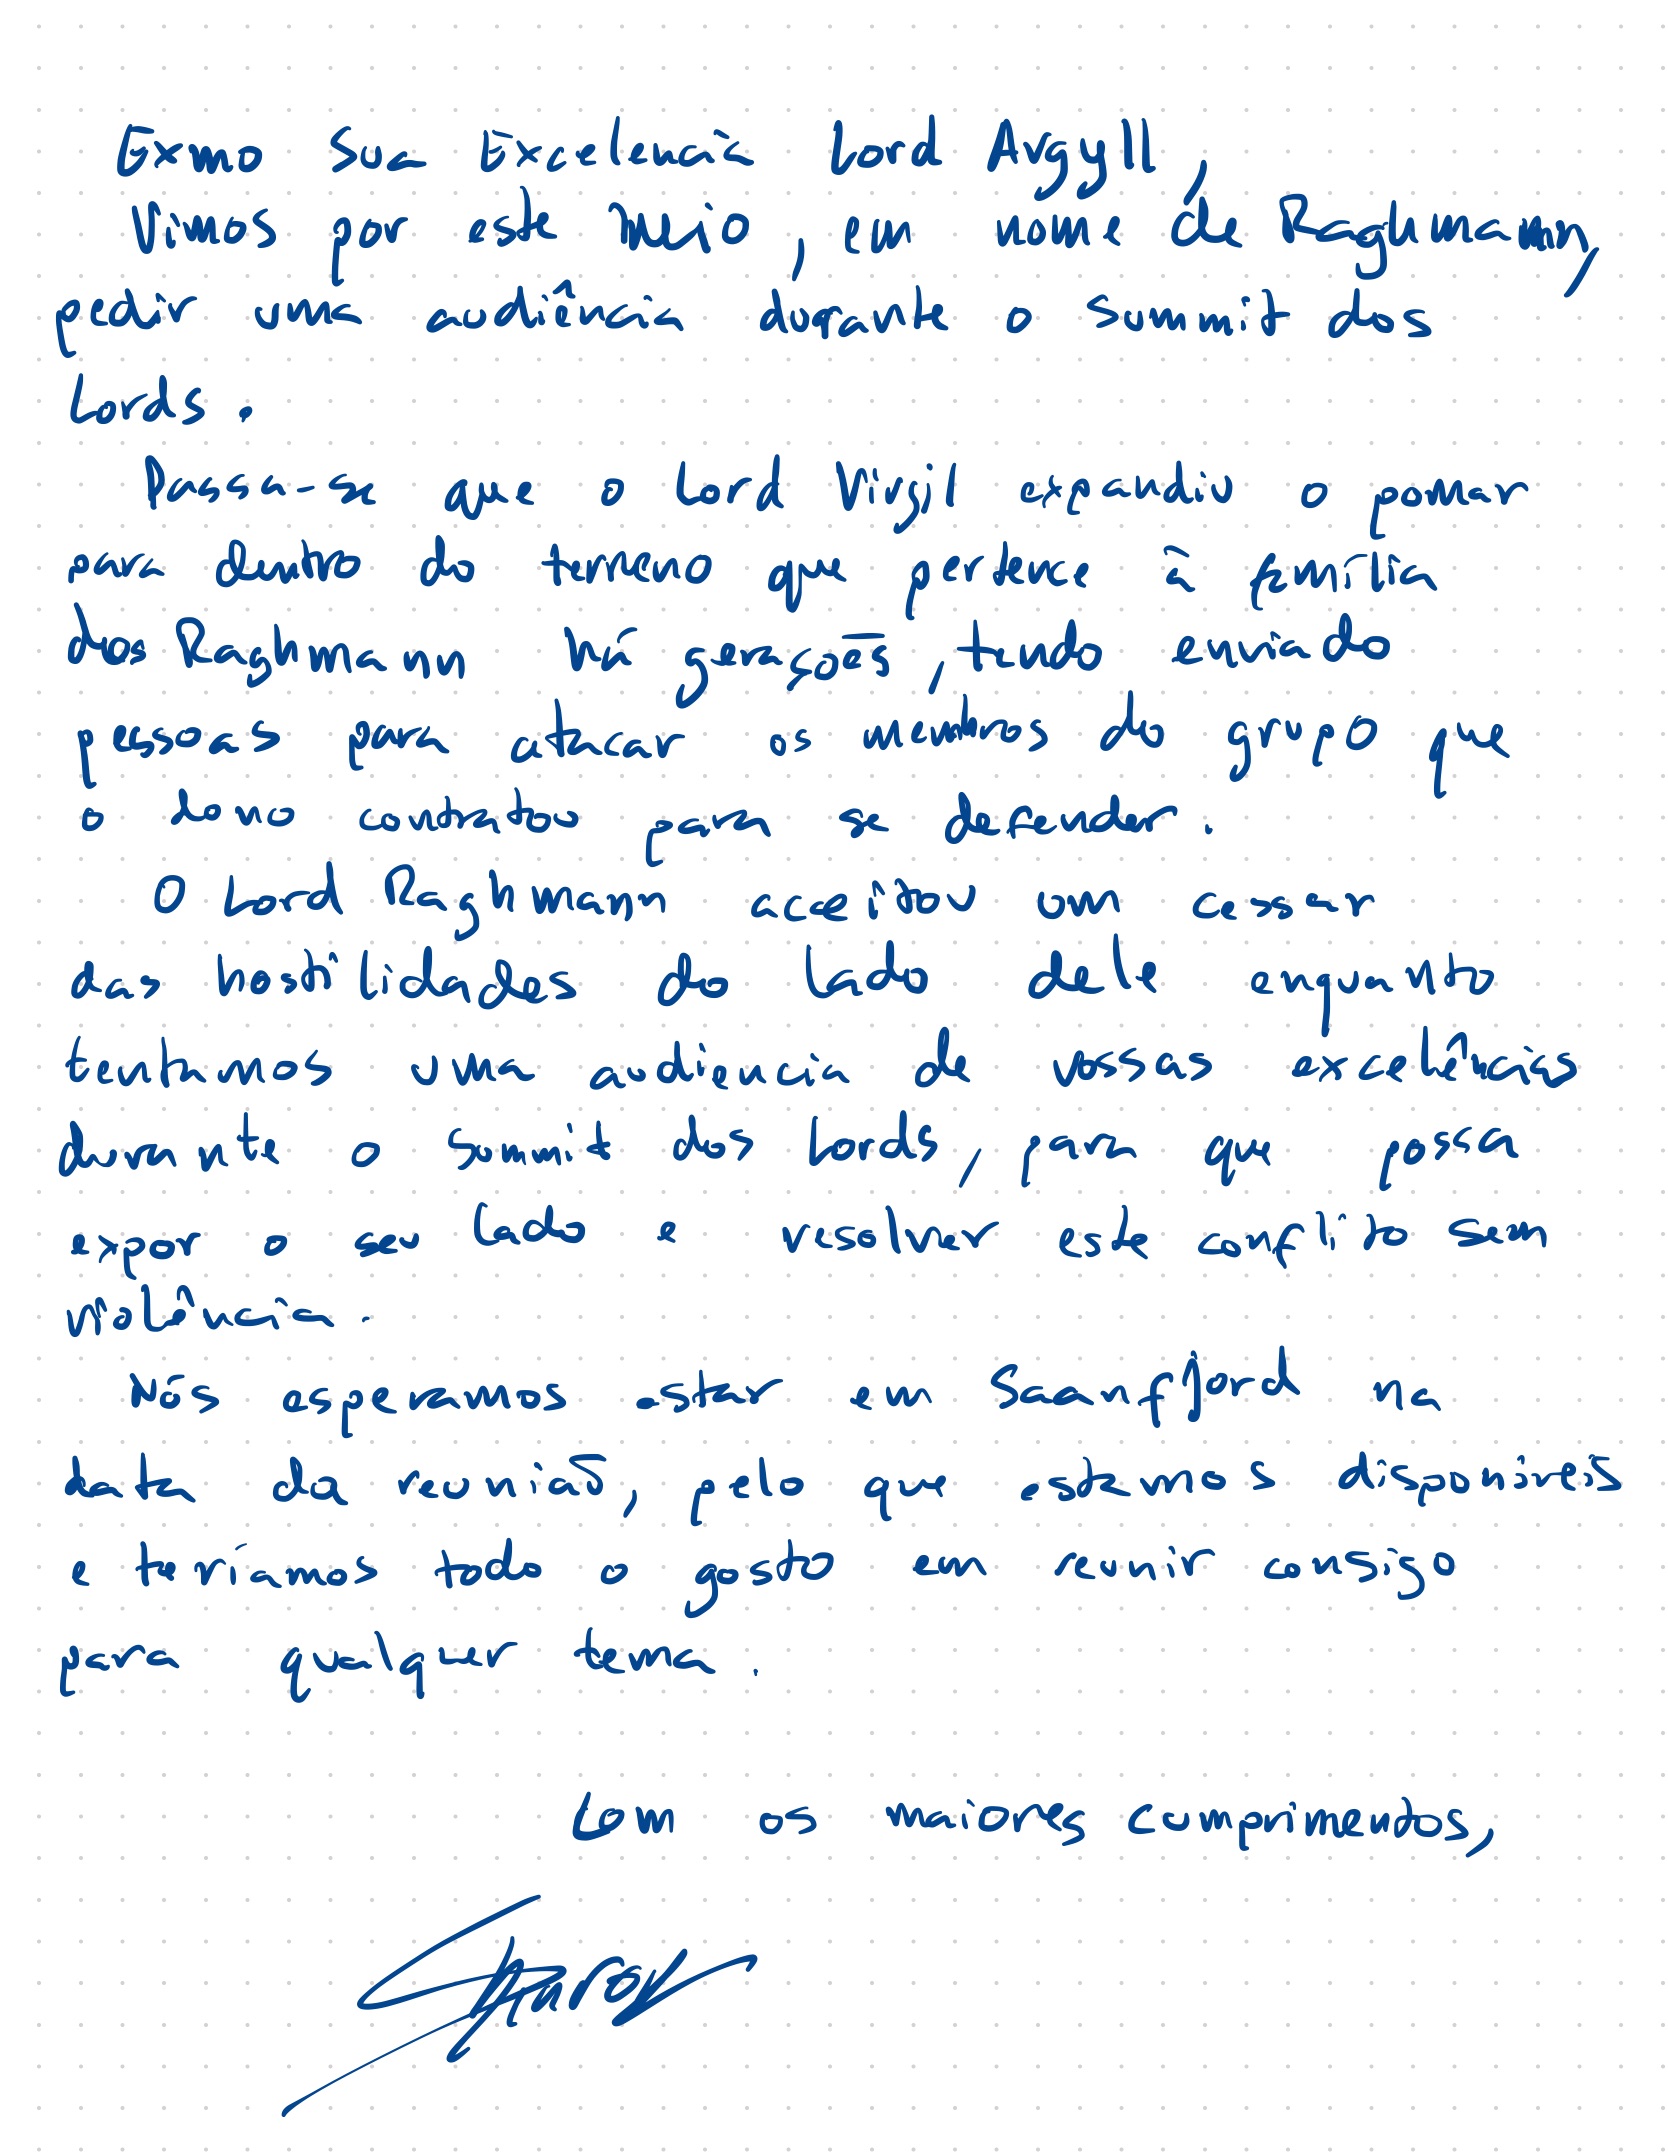 Exmo Sua Excelencia Lord Argyll,
Vimos por este meio, em nome de Raghmann,
pedir uma audiência durante o summit dos
Lords.
Passa-se que o Lord Virgil expandiu o pomar
para dentro do terreno que pertence à família
dos Raghmann há gerações, tendo enviado
pessoas para atacar os membros do grupo que
o dono contratou para se defender.
O Lord Raghmann aceitou um cessar
das hostilidades do lado dele enquanto
tentamos uma audiencia de vossas excelências
durante o summit dos Lords, para que possa
expor o seu lado e resolver este conflito sem
violência.
Nós esperamos estar em Saanfjord na
data da reunião, pelo que estamos disponíveis
e teríamos todo o gosto em reunir consigo
para qualquer tema.
Com os maiores cumprimentos,